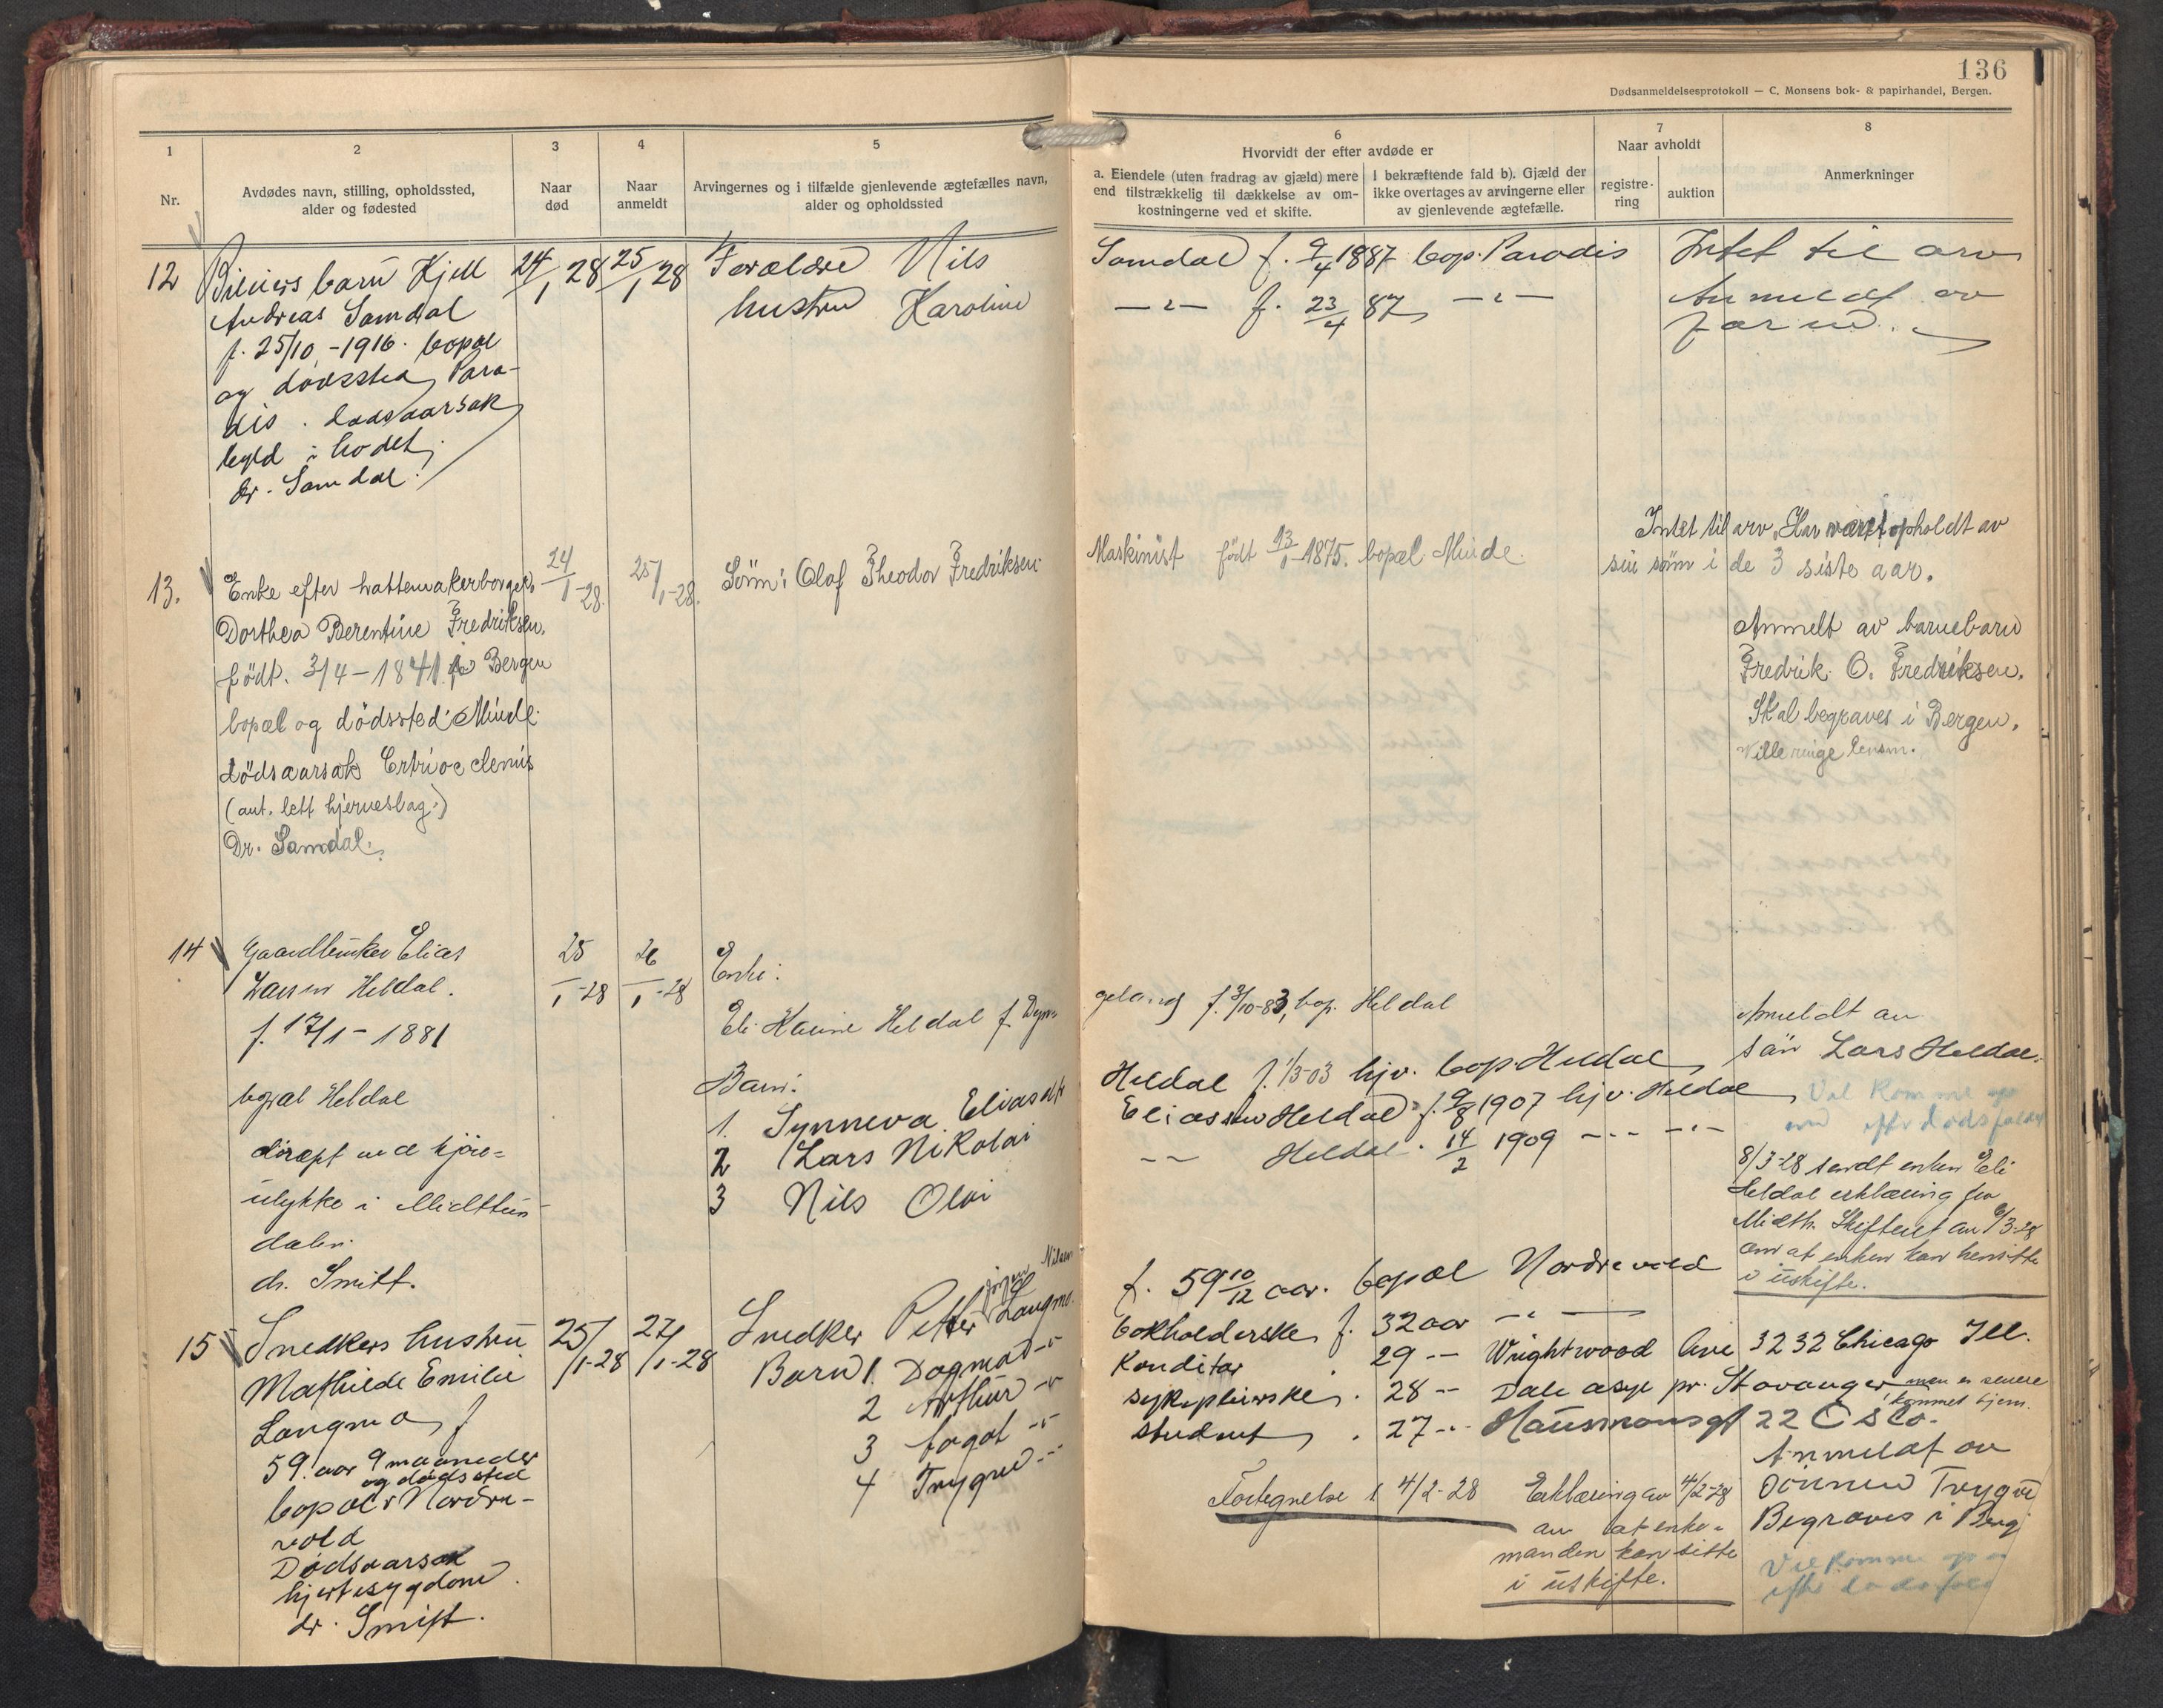 136
Dødsanmeldelsesprotokoll — C. Monsens bok- & papirhandel, Bergen.
1
Nr.
2
Avdødes navn, stilling, opholdssted,
alder og fødested
3
Naar
død
4
Naar
anmeldt
5
Arvingernes og i tilfælde gjenlevende ægtefælles navn,
alder og opholdssted
6
Hvorvidt der efter avdøde er
a. Eiendele (uten fradrag av gjæld) mere
end tilstrækkelig til dækkelse av om-
kostningerne ved et skifte.
I bekræftende fald b). Gjæld der
ikke overtages av arvingerne eller
av gjenlevende ægtefælle.
7
Naar avholdt
registre-
ring
auktion
8
Anmerkninger
12
barn Kjell
Andreas Samdal
f. 25/10 -1916. bopæl
og dødssted Para-
dis. dødsaarsak
byld i hodet
dr. Samdal.
24/1 28
25/1 28
Forældre Nils
hustru Karoline
Samdal f. 9/4 1887 bop. Paradis
— " — f. 23/4 87 — " —
Intet til arv
Anmeldt av
faren.
13.
Enke efter hattemakerborger
Dorthea Berentine Fredriksen.
født. 3/4 - 1841 Bergen
bopæl og dödssted: Minde.
dödsaarsak
(ant. lett hjerneslag.)
Dr. Samdal.
24/1 -28.
25/1 -28.
Sönn: Olaf Theodor Fredriksen
Maskinist født 13/1 1875. bopæl Minde.
Intet til arv. Har vært opholdt av
sin sönn i de 3 siste aar.
Anmelt av barnebarn
Fredrik O. Fredriksen.
Skal begraves i Bergen.
Ville ringe lensm.
14
Gaardbruker Elias
Larsen Heldal.
f. 17/1 - 1881
bopæl Heldal
dræpt ved kjöre-
ulykke i Midttun
dalen.
dr. Smitt.
25/1 -28
26/1 -28
Enke:
Eli Karine Heldal f. Dyn-
Barn:
1. Synneva Eliasdtr
2 Lars Nikolai
3 Nils Olai
geland f. 3/10-83, bop. Heldal
Heldal f. 1/3-03 hjv. bop. Heldal
Eliassen Heldal f. 9/8 1907 hjv. Heldal
— — Heldal . 14/2 1909 — " — — " —
Anmeldt av
sön Lars Heldal.
Vil komme
8/3-28 sendt enken Eli
Heldal erklæring fra
Midth. Skifteret av 6/3-28
om at enken kan hensitte
i uskifte.
15
Snedkers hustru
Mathilde Emilie
Langmo f
59 aar 9 maaneder
og dødssted
bopæl Nordre-
vold
Dødsaarsak
hjertesygdom.
dr. Smitt.
25/1-28
27/1-28
Nilsen
Snedker Petter Langmo.
Barn 1. Dagmar — " —
2 Arthur — " —
3 — " —
4 Trygve — " —
f. 59 10/12 aar. bopæl Nordrevold
bokholderske f. 32 aar — " —
Konditor . 29 — — Wrightwood Ave 3232 Chicago Ill.
sykepleierske . 28 — — Dale asyl pr. Stavanger men er senere
kommet hjem.
student . 27 — " — Hausmansgt 22 Oslo.
Fortegnelse 4/2-28
Erklæring av 4/2-28
av at enke-
manden kan sitte
i uskifte.
Anmeldt av
sönnen Trygve
Begraves i Berg
Vil komme
efter dødsfald